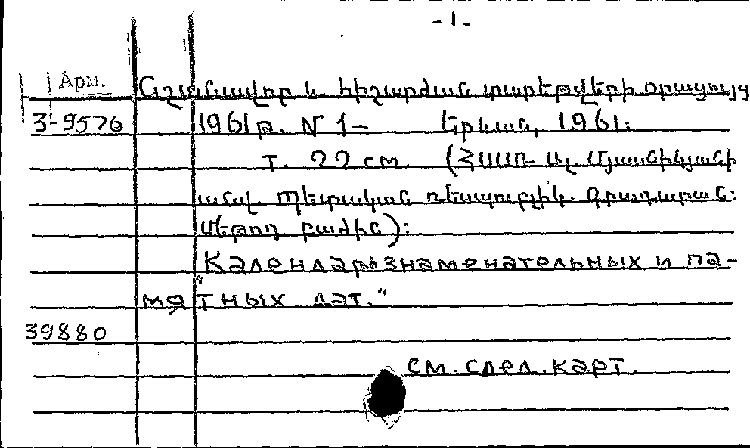 -1-
Арм. Նշանավոր և հիշարժան տարեթվերի օրացույց
3-9576 1961թ. N 1- Երևան, 1961:
т. 22 см. (ՀՍՍՌ Ալ. Մյասնիկյանի
անվ. Պետական ռեսպուբլիկ. գրադարան:
Մեթոդ բաժին):
"Календарь знаменательных и па-
мятных дат."
39880
см. след. карт.